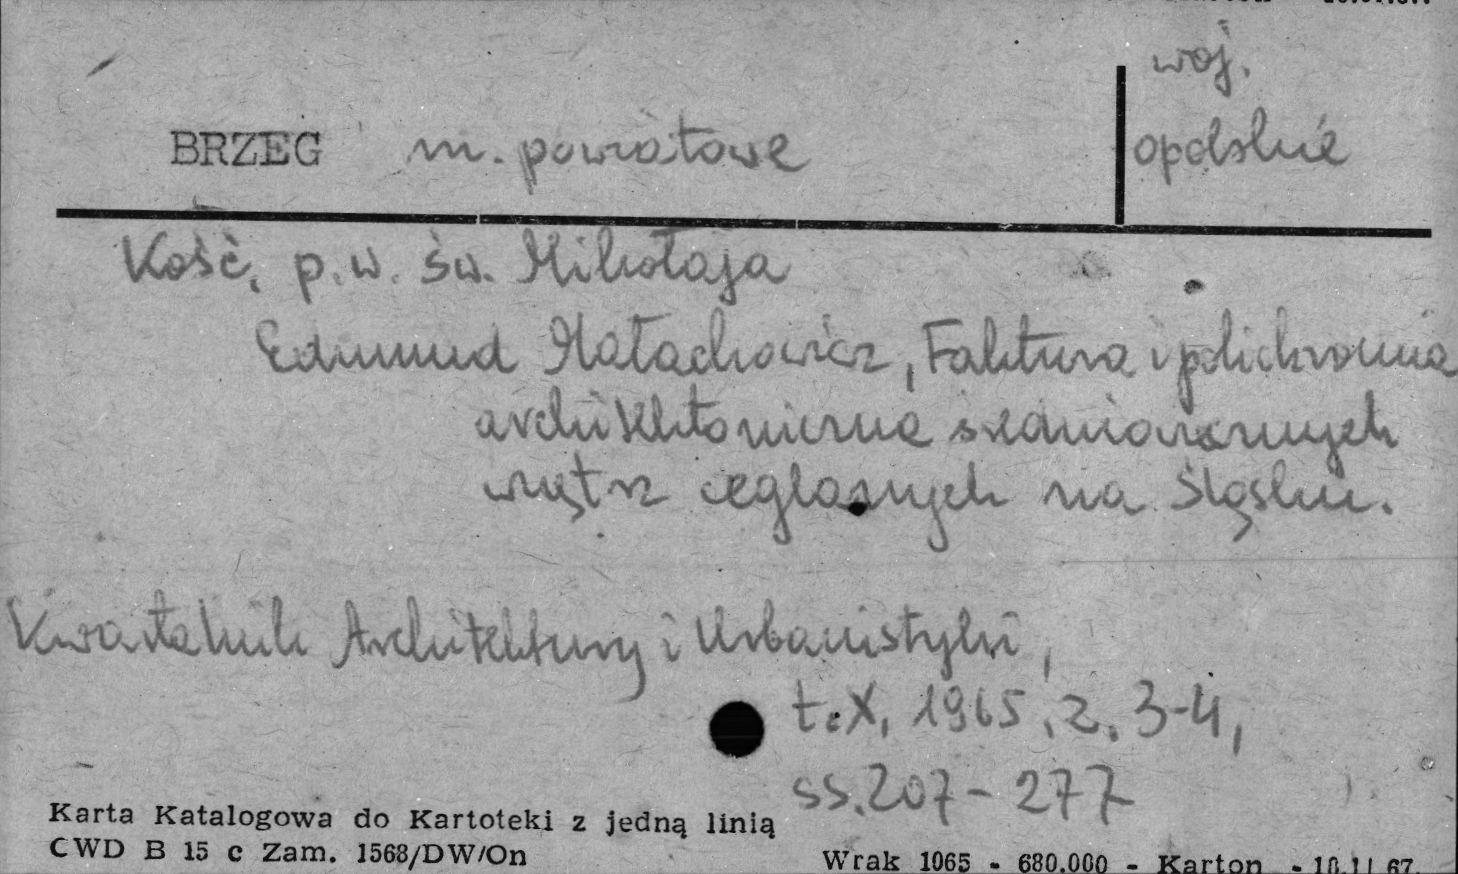 woj.
BRZEG m. powiatowe opolskie
Kość. p.w. św. Mikołaja
Edmund Małachowicz, Faktura i polichromia
architektoniczna średniowiecznych
wnętrz ceglanych na Śląsku.
Kwartalnik Architektury i Urbanistyki,
t.X, 1965, z. 3-4,
ss. 207-277
Karta Katalogowa do Kartoteki z jedną linią
CWD B 15 c Zam. 1568/DW/On
Wrak 1065 - 680.000 - Karton